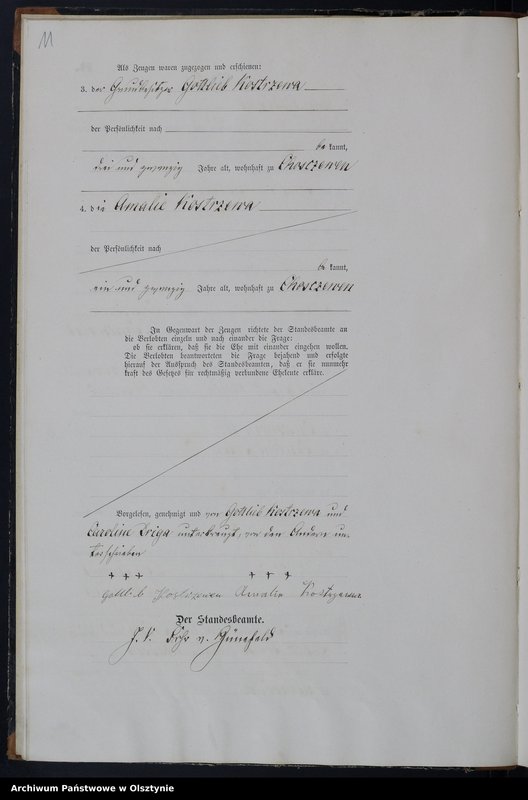 11
Als Zeugen waren zugezogen und erschienen:
3. der Grundbesitzer Gottlieb Kostrzewa
der Persönlichkeit nach
be kannt,
drei und zwanzig Jahre alt, wohnhaft zu Choszczewen
4. die Amalie Kostrzewa
der Persönlichkeit nach
be kannt,
ein und zwanzig Jahre alt, wohnhaft zu Choszczewen
In Gegenwart der Zeugen richtete der Standesbeamte an
die Verlobten einzeln und nach einander die Frage:
ob sie erklären, daß sie die Ehe mit einander eingehen wollen.
Die Verlobten beantworteten die Frage bejahend und erfolgte
hierauf der Ausspruch des Standesbeamten, daß er sie nunmehr
kraft des Gesetzes für rechtmäßig verbundene Eheleute erkläre.
Vorgelesen, genehmigt und von Gottlieb Kostrzewa und
Caroline Driga unterkreuzt, von den Andern un-
terschrieben
+ + + + + +
Gottlieb Amalie Kostrzewa
Der Standesbeamte.
J. V. Frhr v.
Archiwum Państwowe w Olsztynie